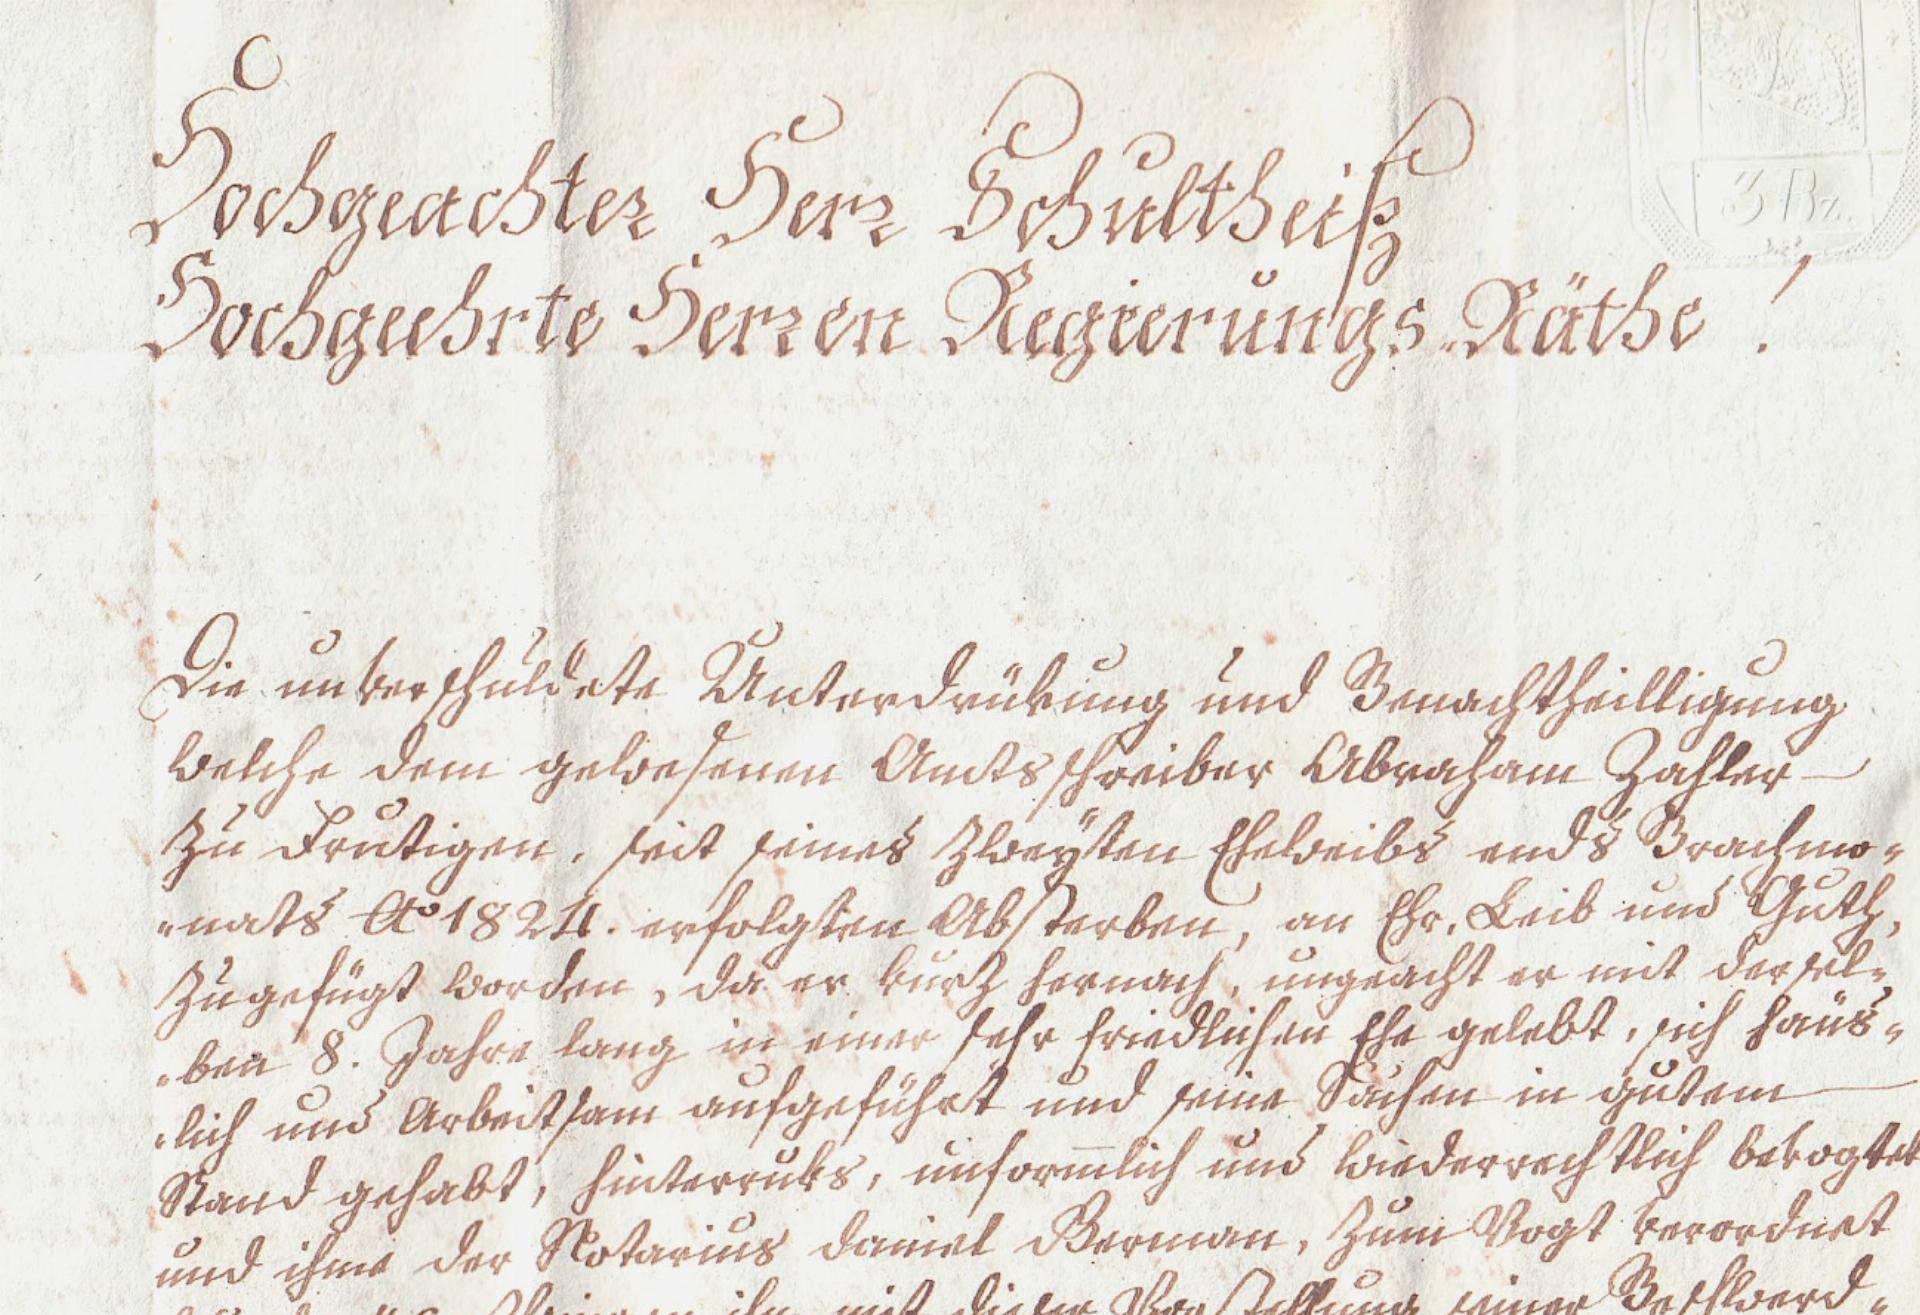 3 Bz.
Hochgeachter Herr Schultheiß
Hochgeehrte Herren Regierungs-Räthe!
Die unverschuldete Unterdrükung und Benachtheilligung
welche dem gewesenen Amtsschreiber Abraham Zahler
zu Frutigen, seit seines Zweÿten Eheweibs ends Brachmo-
-nats Aº 1824. erfolgten Absterben, an Ehr, Leib und Guth,
zugefügt worden, da er kurz hernach, ungeacht er mit dersel-
-ben 8. Jahre lang in einer sehr friedlichen Ehe gelebt, sich häus-
-lich und Arbeitsam aufgeführt und seine Sachen in gutem
Stand gehabt, hinterruks, unformlich und wiederrechtlich bevogtet
und ihme der Notarius Daniel Berman, zum Vogt verordnet
ihn mit dieser Vorstellung seiner Beschwerd-